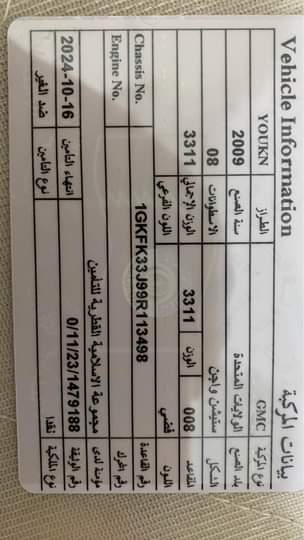 Vehicle Information بيانات المركبة
YOUKN الطراز GMC نوع المركبة
2009 سنة الصنع الولايات المتحدة بلد الصنع
08 الاسطوانات ستيشن واجن الشكل
3311 الوزن الإجمالي 3311 الوزن 008 المقاعد
اللون الفرعي فضي اللون
Chassis No. 1GKFK33J99R113498 رقم القاعدة
Engine No. رقم المحرك
مجموعة الاسلامية القطرية للتأمين مؤمنة لدى
2024-10-16 انتهاء التامين 0/11/23/1479188 رقم الوثيقة
ضد الغير نوع التامين نقدا نوع الملكية